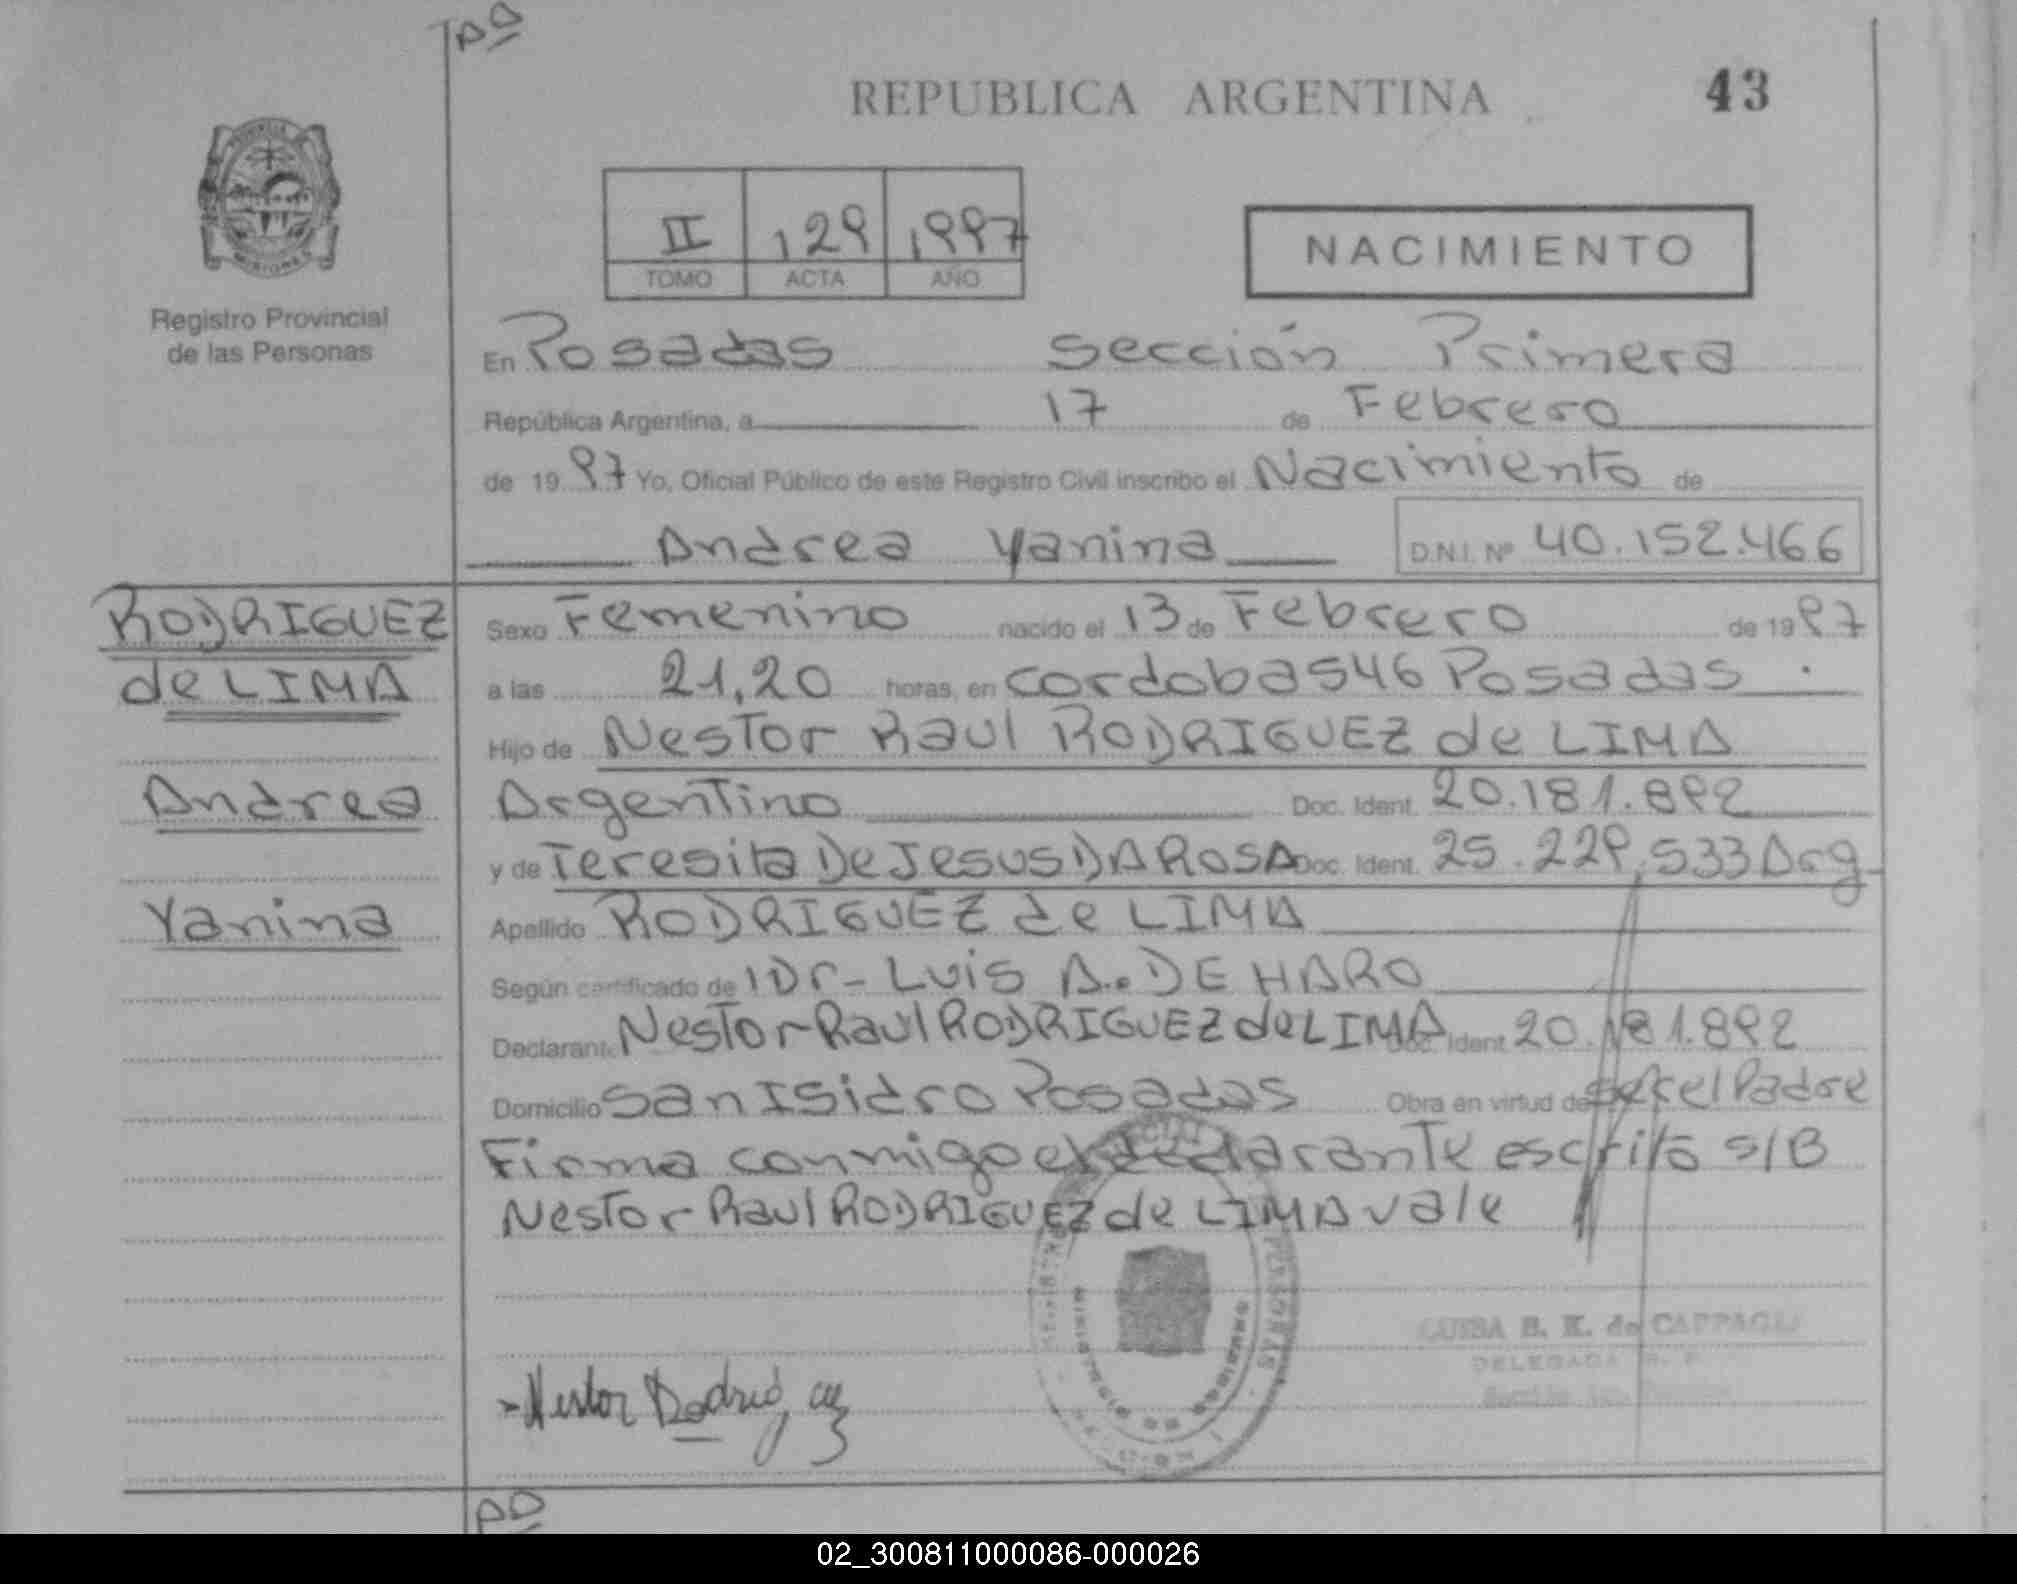 REPUBLICA ARGENTINA 43
MISIONES
Registro Provincial
de las Personas
II 129 1997
TOMO ACTA AÑO
NACIMIENTO
En Posadas Sección Primera
República Argentina, a 17 de Febrero
de 1997 Yo, Oficial Público de este Registro Civil inscribo el Nacimiento de
Andrea Yanina D.N.I. Nº 40.152.466
RODRIGUEZ
de LIMA
Andrea
Yanina
Sexo Femenino nacido el 13 de Febrero de 1997
a las 21,20 horas, en Cordoba 546 Posadas
Hijo de Nestor Raul RODRIGUEZ de LIMA
Argentino Doc. Ident. 20.181.892
y de Teresita De Jesus DA ROSA Doc. Ident. 25.229.533 Arg.
Apellido RODRIGUEZ de LIMA
Según certificado de Dr- Luis A. DE HARO
Declarante Nestor Raul RODRIGUEZ de LIMA Doc. Ident 20.181.892
Domicilio San Isidro Posadas Obra en virtud de ser el Padre
Firma conmigo el declarante escrito s/B
Nestor Raul RODRIGUEZ de LIMA vale
LUISA B. K. de CAPPAGLI
DELEGADA
Nestor Rodriguez
02_300811000086-000026